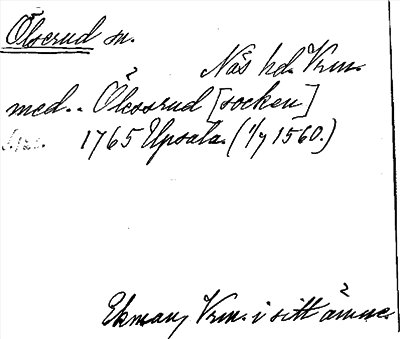 Ölserud sn.
Näs hd. Vrm.
med. Ölessrud [socken]
1765 Upsala. (1/7 1560.)
Ekman, Vrm. i sitt ämne.